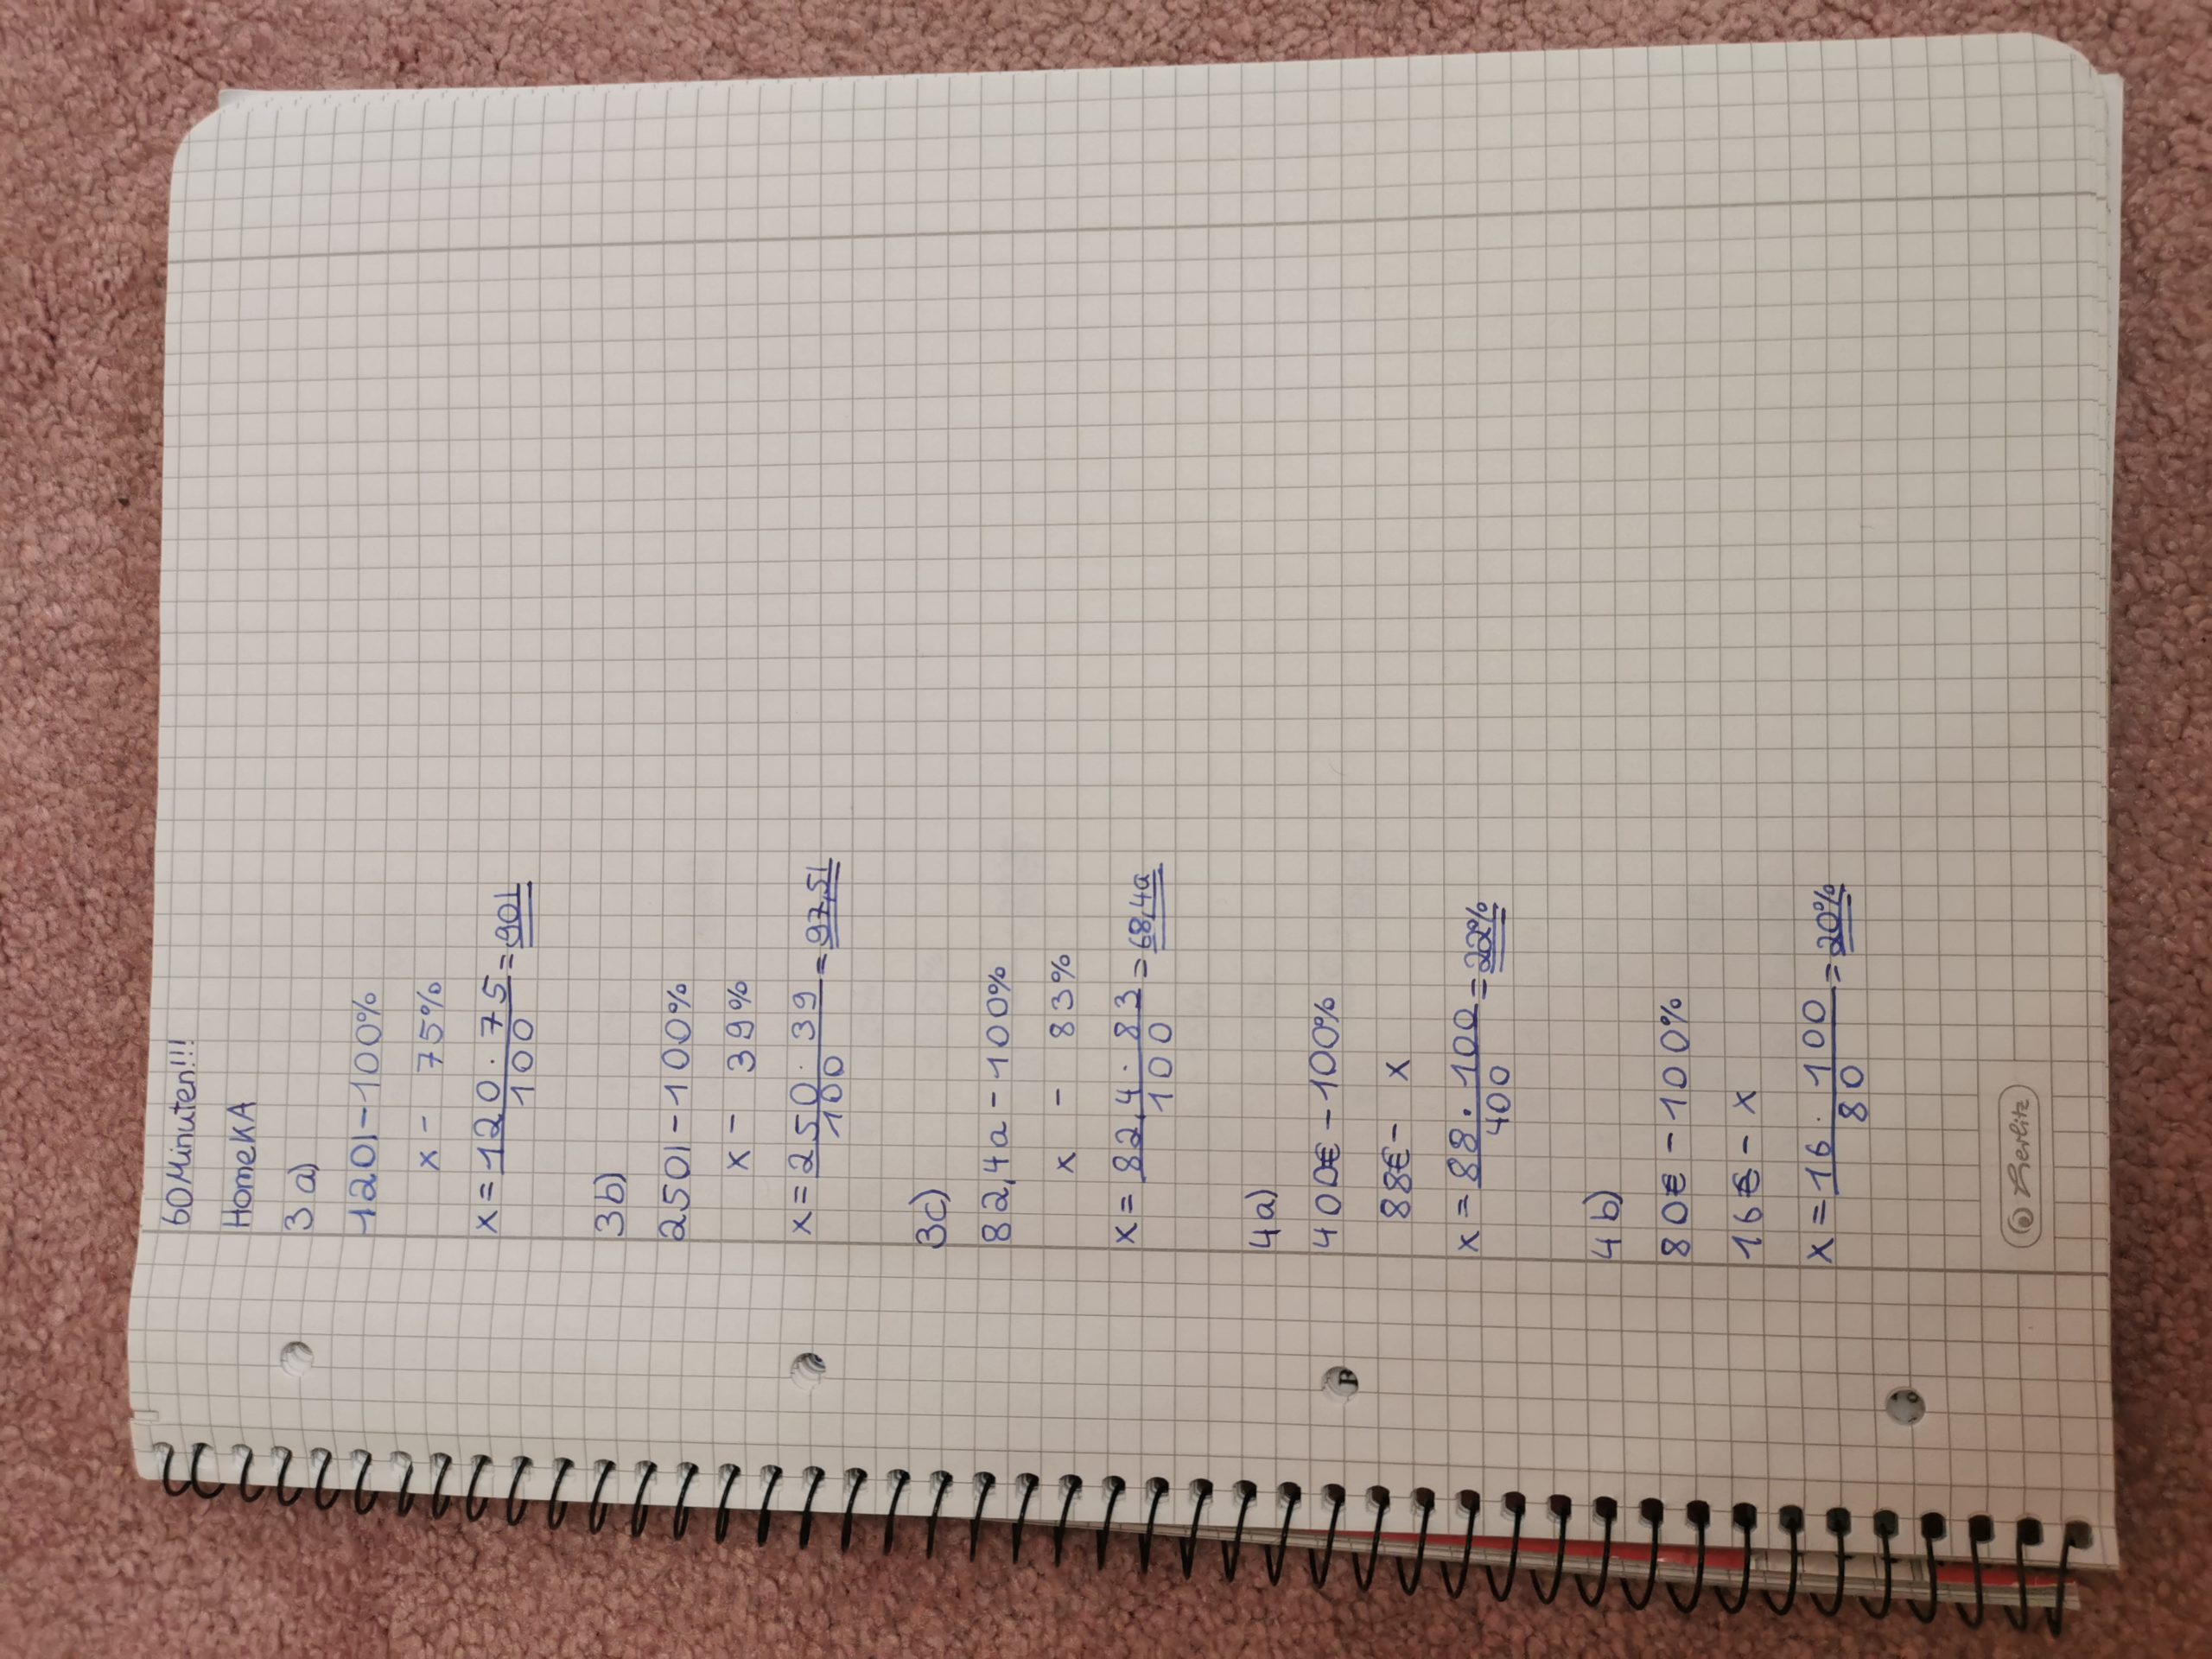 60 Minuten!!!
HomeKA
3 a)
120l-100%
x - 75%
x = 120 · 75 / 100 = 90l
3b)
250l-100%
x - 39%
x = 250 · 39 / 100 = 97,5l
3c)
82,4a - 100%
x - 83%
x = 82,4 · 83 / 100 = 68,4a
4a)
400€-100%
88€- x
x = 88 · 100 / 400 = 22%
4 b)
80€-100%
16€- x
x = 16 · 100 / 80 = 20%
Herlitz